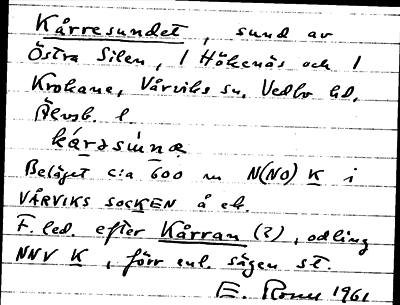 Kårresundet, sund av
Östra Silen, / Hökenäs och /
Krokane, Vårviks sn, Vedbo hd,
Älvsb. l.
Beläget c:a 600 m N(NO) K i
VÅRVIKS SOCKEN å ek.
F. led. efter Kårran (?), odling
NNV K, förr enl. sägen st.
1961